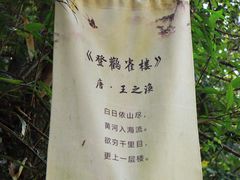 《登鸛雀楼》
唐·王之涣
白日依山尽，
黄河入海流。
欲穷千里目，
更上一层楼。